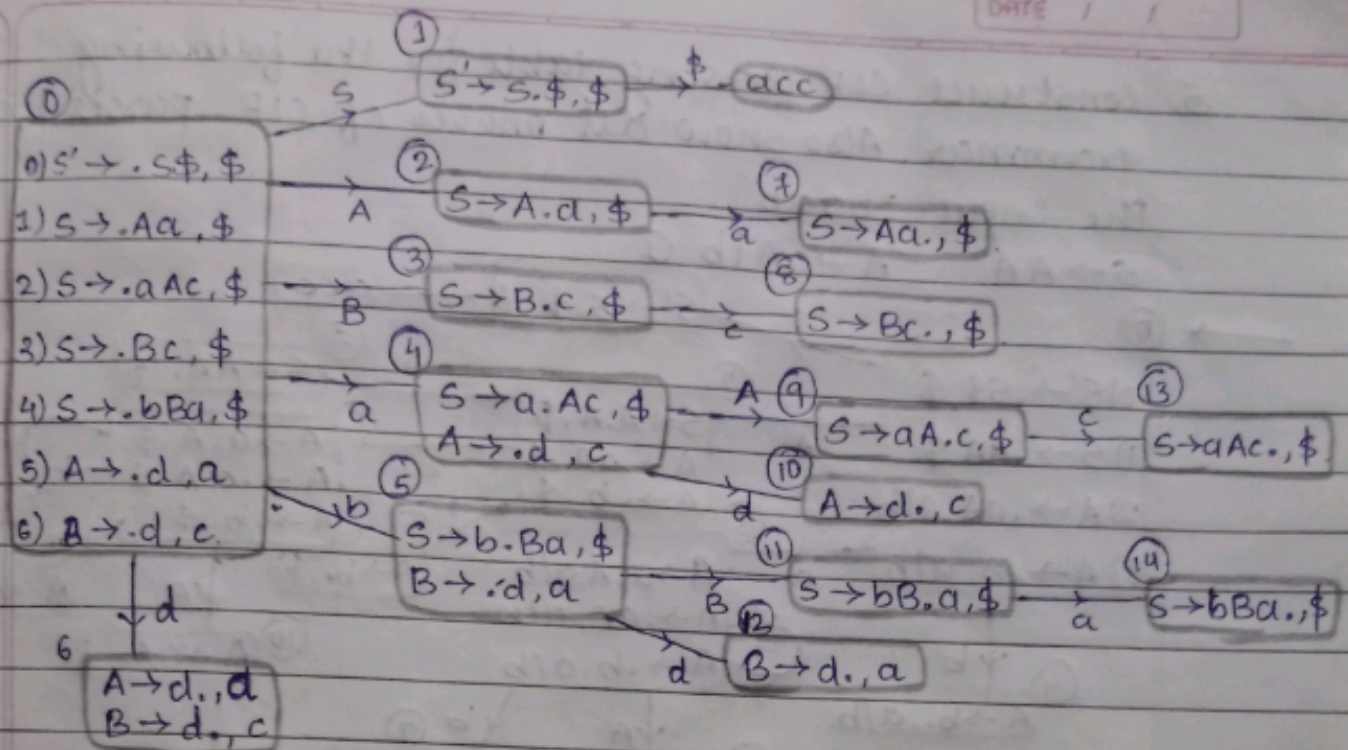 DATE / /
①
S' → S.$, $
$
acc
⓪
S
0) S' → .S$, $
1) S → .Aa, $
2) S → .aAc, $
3) S → .Bc, $
4) S → .bBa, $
5) A → .d, a
6) B → .d, c
A
②
S → A.d, $
a
⑦
S → Aa., $
B
③
S → B.c, $
c
⑧
S → Bc., $
a
④
S → a.Ac, $
A → .d, c
A
⑨
S → aA.c, $
c
⑬
S → aAc., $
d
⑩
A → d., c
b
⑤
S → b.Ba, $
B → .d, a
B
⑪
S → bB.a, $
a
⑭
S → bBa., $
d
⑫
B → d., a
d
6
A → d., d
B → d., c